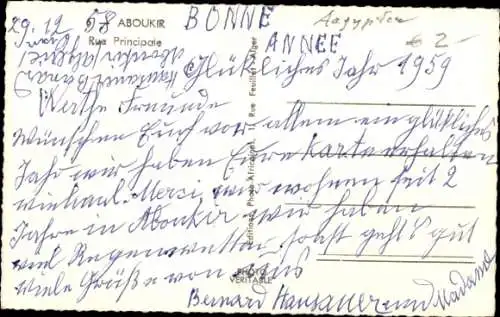 29.12 58 ABOUKIR BONNE Aegypten
Rue Principale ANNEE € 2-
Glückliches Jahr 1959
Werthe Freunde
Wünschen Euch vor allem ein glückliches
Jahr wir haben Eure Karte erhalten
vielmal Merci, wir wohnen seit 2
Jahre in Aboukir wir haben
viel Regenwetter sonst geht's gut
viele Grüße von uns
Bernard Hansauer und Madame
Editions Photo Africaines Rue Feuillet Alger
PHOTO
VERITABLE